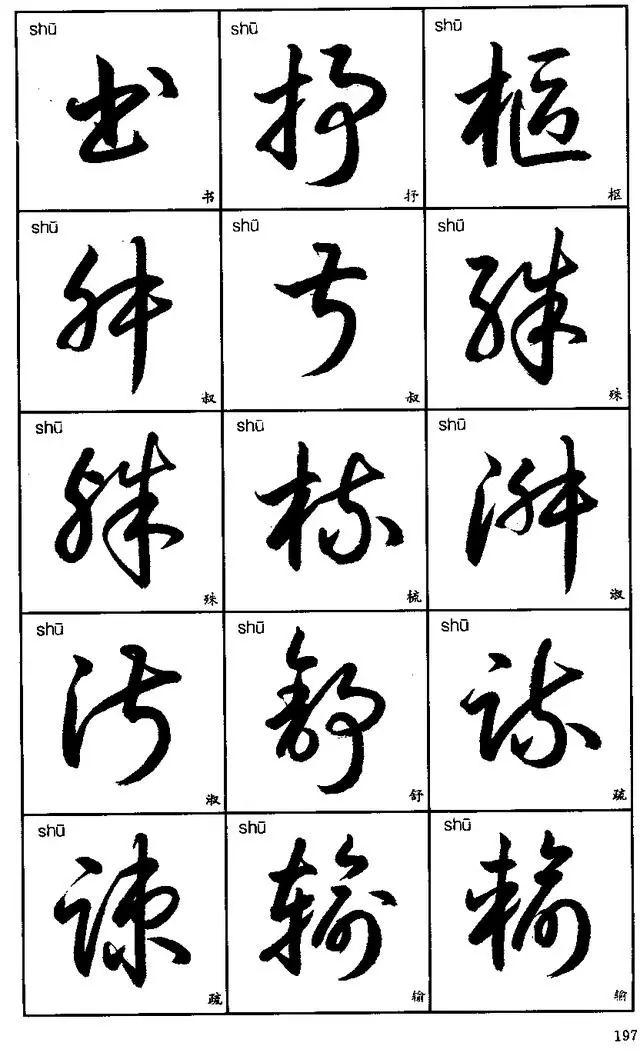 shū shū shū
书 抒 枢
shū shū shū
叔 叔 殊
shū shū shū
殊 梳 淑
shū shū shū
淑 舒 疏
shū shū shū
疏 输 输
197